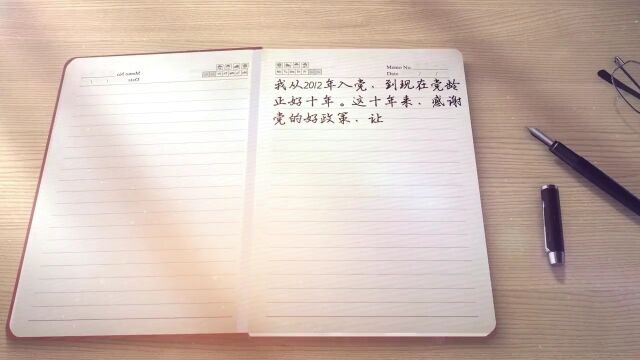 Memo No.
Date
Memo No.
Date
我从2012年入党，到现在党龄
正好十年。这十年来，感谢
党的好政策，让